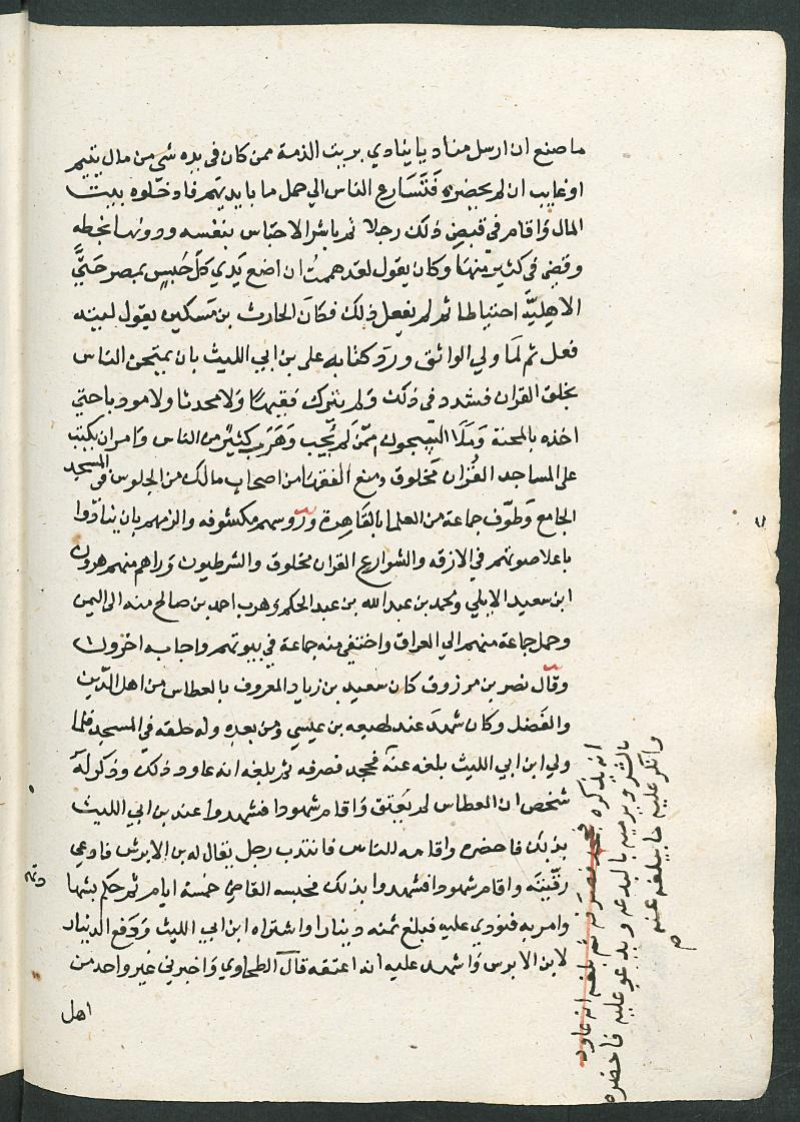 ما صنع ان ارسل مناديا ينادي بريت الذمة ممن كان في يده شي من مال يتيم
او غايب ان لم يحضره فتسارع الناس الي حمل ما بايديهم فادخلوه بيت
المال واقام في قبض ذلك رجلا ثم باشر الاحباس بنفسه ودونها بخطه
وقضي في كثير منها وكان يقول لقد هممت ان اضع يدي كل حبيس بمصر حتي
الاهلية احتياطا ثم لم يفعل ذلك فكان الحارث بن مسكين يقول ليته
فعل ثم لما ولي الواثق ورد كتابه علي بن ابي الليث بان يمتحن الناس
بخلق القران فشدد في ذلك ولم يترك فقيها ولا محدثا ولا مودبا حتي
اخذه بالمحنة وملا السجون ممن لم يجب وهرب كثير من الناس وامر ان يكتب
علي المساجد القران مخلوق ومنع الفقها من اصحاب مالك من الجلوس في المسجد
الجامع وطوف جماعة من العلما بالقاهرة وروسهم مكشوفه والزمهم بان ينادوا
باعلا صوتهم في الازقه والشوارع القران مخلوق والشرطيون وراهم منهم هرون
ابن سعيد الايلي ومحمد بن عبد الله بن عبد الحكم وهرب احمد بن صالح منه الي اليمن
وحمل جماعة منهم الي العراق واختفي منه جماعة في بيوتهم واجاب اخرون
وقال نصر بن مرزوق كان سعيد بن زياد المعروف بالعطاس من اهل الدين
والفضل وكان شهد عند لهيعه بن عيسي ومن بعده وله حلقه في المسجد فلما
ولي ابن ابي الليث بلغه عنه فجحد فصرفه ثم بلغه انه عاود ذلك وذكر له
شخص ان العطاس لم يعتق واقام شهودا فشهدوا عند بن ابي الليث
بذلك فاحضره واقامه للناس فانتدب رجل يقال له بن الابرش فادعي
رقيته واقام شهودا فشهدوا بذلك فحبسه القاضي خمسة ايام ثم حكم بشها
دتهم
وامر به فنودي عليه فبلغ ثمنه دينارا واشتراه ابن ابي الليث ودفع الدينار
لابن الابرس واشهد عليه انه اعتقه قال الطحاوي واخبرني غير واحد من
اهل
انه يذكره فجحد فصرفه ثم بلغه انه عاود
بالشر ويرميه بالبدعه ويدعو عليه فاحضره
وانكر عليه ما يبلغه عنه